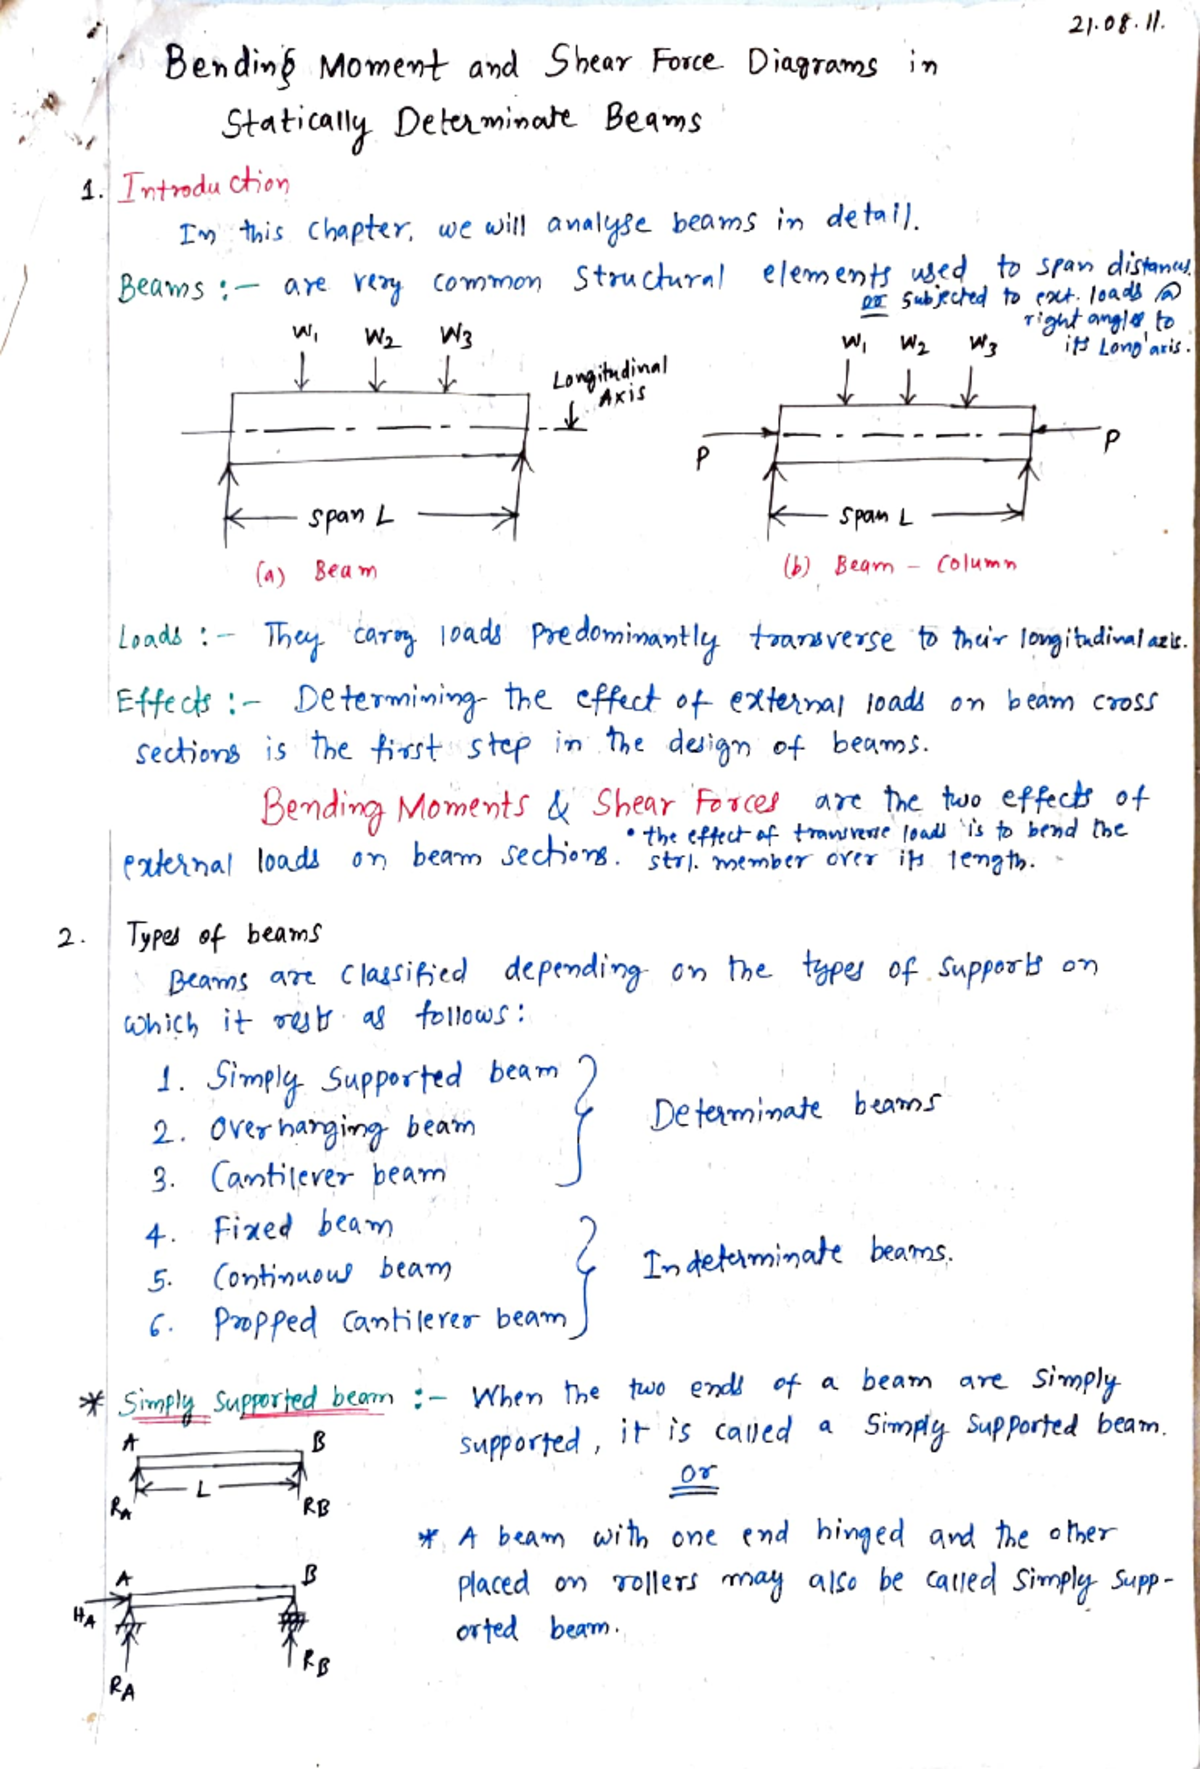 21.08.11.
Bending Moment and Shear Force Diagrams in
Statically Determinate Beams
1. Introduction
In this chapter, we will analyse beams in detail.
Beams :- are very common structural elements used to span distances.
or subjected to ext. loads @
right angles to
its Long' axis.
W1 W2 W3
Longitudinal
Axis
span L
(a) Beam
W1 W2 W3
P P
span L
(b) Beam - Column
Loads :- They carry loads predominantly transverse to their longitudinal axis.
Effects :- Determining the effect of external loads on beam cross
sections is the first step in the design of beams.
Bending Moments & Shear Forces are the two effects of
external loads on beam sections.
• the effect of transverse loads is to bend the
strl. member over its length.
2. Types of beams
Beams are classified depending on the types of supports on
which it rests as follows:
1. Simply Supported beam
2. Overhanging beam
3. Cantilever beam
Determinate beams
4. Fixed beam
5. Continuous beam
6. Propped Cantilever beam
Indeterminate beams.
* Simply Supported beam :- When the two ends of a beam are simply
supported, it is called a Simply Supported beam.
or
A B
L
RA RB
* A beam with one end hinged and the other
placed on rollers may also be called Simply Supp-
orted beam.
A B
HA
RA RB